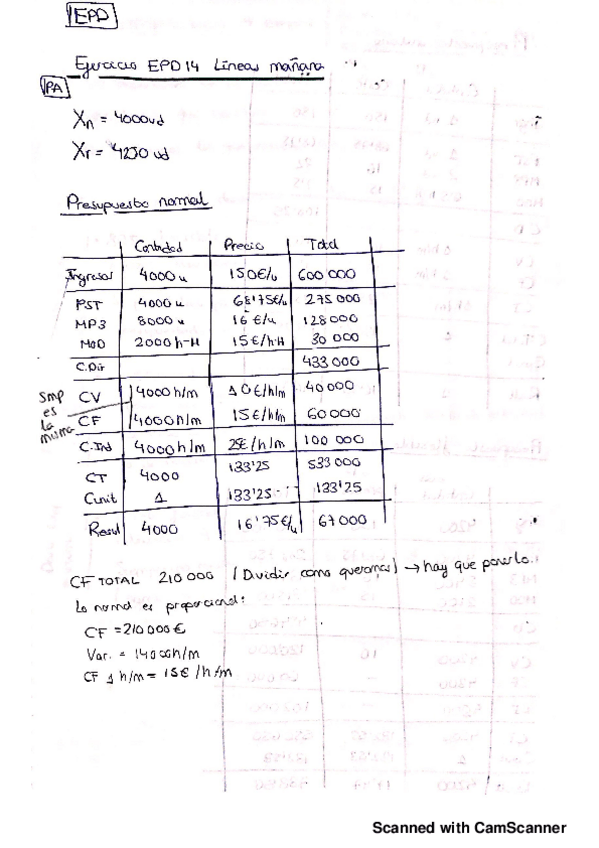 EPD
Ejercicio EPD 14 Líneas mañana
PA
Xn = 4000ud
Xr = 4230 ud
Presupuesto normal
Cantidad Precio Total
Ingresos 4000u 150€/u 600 000
PST 4000u 68'75€/u 275 000
MP3 8000u 16 €/u 128 000
MOD 2000 h-H 15€/h-H 30 000
C.Dir 433 000
Smp es la misma
CV 4000 h/m 10€/h/m 40 000
CF 4000 h/m 15€/h/m 60 000
C.Ind 4000 h/m 25€/h/m 100 000
CT 4000 133'25 533 000
Cunit 1 133'25 133'25
Resul 4000 16'75€/u 67 000
CF TOTAL 210 000 (Dividir como queramos) → hay que ponerlo.
Lo normal es proporcional:
CF = 210 000 €
Var. = 14000h/m
CF 1 h/m = 15€/h/m
Scanned with CamScanner